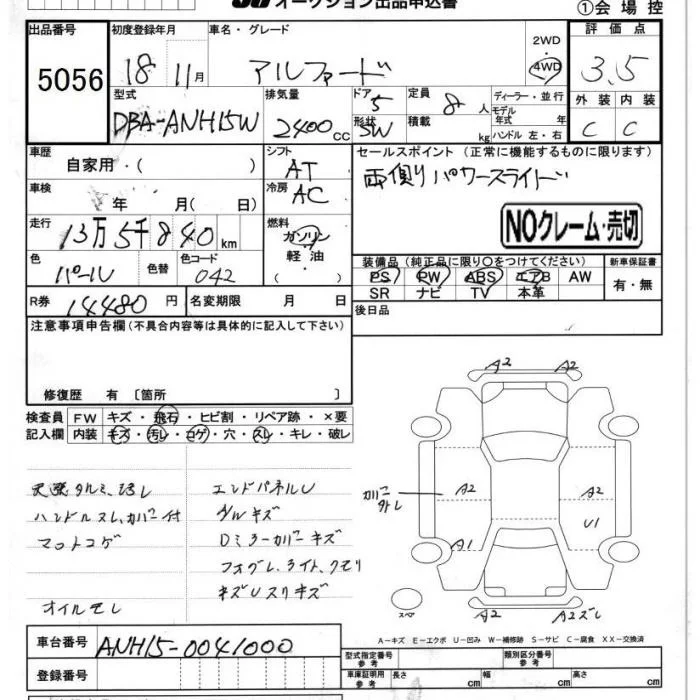 オークション出品申込書
①会場控
出品番号
5056
初度登録年月
18年11月
車名・グレード
アルファード
2WD
・
4WD
評価点
3.5
外装 内装
C C
型式
DBA-ANH15W
排気量
2400cc
ドア
5
形状
5W
定員
8人
積載
kg
ディーラー・並行
モデル
年式 年
ハンドル 左・右
車歴
自家用・( )
シフト
AT
セールスポイント(正常に機能するものに限ります)
両側りパワースライド
NOクレーム・売切
車検
年 月( 日)
冷房
AC
走行
13万5千840km
燃料
ガソリン
軽油・
( )
色
パール
色替
色コード
042
装備品(純正品に限り〇をつけてください)
新車保証書
PS PW ABS エアB AW
SR ナビ TV 本革
有・無
R券
14480円
名変期限 月 日
後日品
注意事項申告欄(不具合内容等は具体的に記入して下さい)
修復歴 有 〔箇所 〕
検査員 FW キズ・飛石・ヒビ割・リペア跡・×要
記入欄 内装 キズ・汚レ・コゲ・穴・スレ・キレ・破レ
天張タルミ、汚レ
ハンドルスレ、カバー付
マットコゲ
オイルモレ
エンドパネルU
Dミラーカバーキズ
フォグレ、ライト、クモリ
キズUスリキズ
A2 A2
カバー
外レ
A2 A2
U1
A1
スペア
A2 A2ズレ
A－キズ E－エクボ U－凹み W－補修跡 S－サビ C－腐食 XX－交換済
車台番号
ANH15-0041000
登録番号
型式指定番号
参考
類別区分番号
参考
車庫証明用
参考
長さ cm 幅 cm 高さ cm